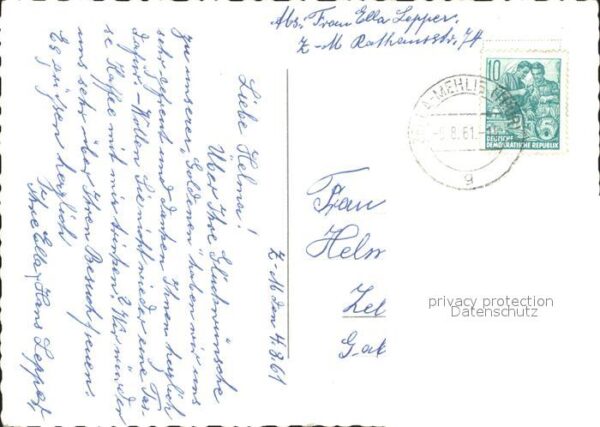 Abs. Frau Ella Lepper.
Z-M Rathausstr. 7A
Z-M den 4.8.61
Liebe Helma!
Über Ihre Glückwünsche
zu unserer "Goldenen" haben wir uns
sehr gefreut und danken Ihnen herzlich
dafür. Wollen Sie nicht wieder eine Tas-
se Kaffee mit mir trinken? Wir würden
uns sehr über Ihren Besuch freuen.
Es grüßen herzlich
Ihre Ella u. Hans Lepper.
10
DEUTSCHE
DEMOKRATISCHE REPUBLIK
-MEHLIS
8.61
g
Frau
Helm
Zel
Gak
privacy protection
Datenschutz